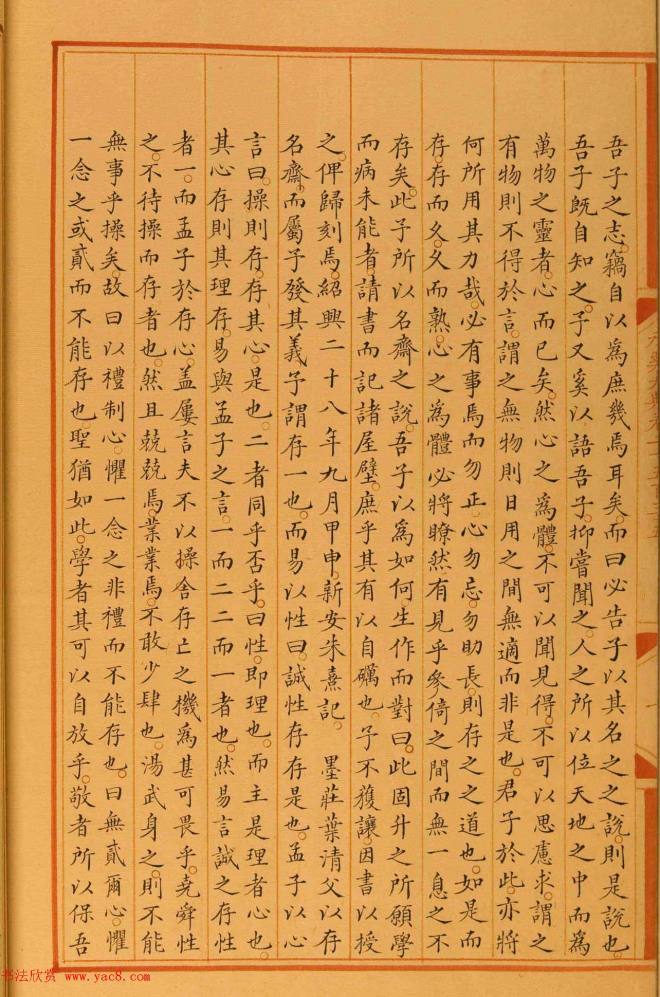 吾子之志。竊自以爲庶幾焉耳矣。而曰必告子以其名之之說。則是說也。
吾子旣自知之。予又奚以語吾子。抑嘗聞之。人之所以位天地之中而爲
萬物之靈者。心而已矣。然心之爲體。不可以聞見得。不可以思慮求。謂之
有物則不得於言。謂之無物則日用之間無適而非是也。君子於此。亦將
何所用其力哉。必有事焉而勿正心勿忘。勿助長。則存之之道也。如是而
存。存而久。久而熟。心之爲體必將瞭然有見乎參倚之間而無一息之不
存矣。此予所以名齋之說。吾子以爲如何。生作而對曰。此固升之所願學
而病未能者。請書而記諸屋壁。庶乎其有以自礪也。予不獲讓。因書以授
之。俾歸刻焉。紹興二十八年九月甲申。新安朱熹記。 墨莊葉清父以存
名齋。而屬予發其義。予謂存一也。而易以性曰。誠性存存是也。孟子以心
言曰。操則存。存其心。是也。二者同乎否乎。曰性。即理也。而主是理者心也。
其心存則其理存。易與孟子之言。一而二二而一者也。然易言誠之存性
者一。而孟子於存心。盖屢言夫不以操舍存亡之機爲甚可畏乎。堯舜性
之。不待操而存者也。然且兢兢焉。業業焉。不敢少肆也。湯武身之。則不能
無事乎操矣。故曰以禮制心。懼一念之非禮而不能存也。曰無貳爾心。懼
一念之或貳而不能存也。聖猶如此。學者其可以自放乎。敬者所以保吾
书法欣赏 www.yac8.com